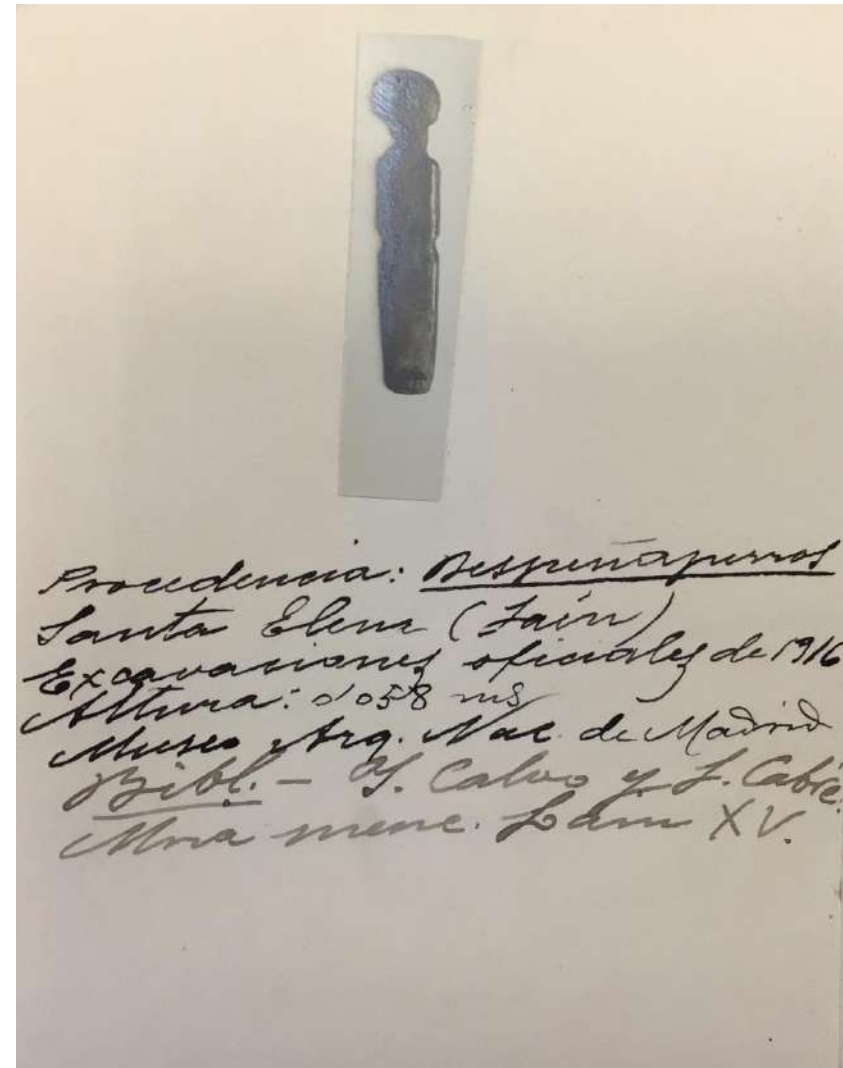 Procedencia: Despeñaperros
Santa Elena (Jaén)
Excavaciones oficiales de 1916
Altura: 0'058 ms
Museo Arq. Nac. de Madrid
Bibl. - Y. Calvo y J. Cabré.
Mria menc. Lam XV.